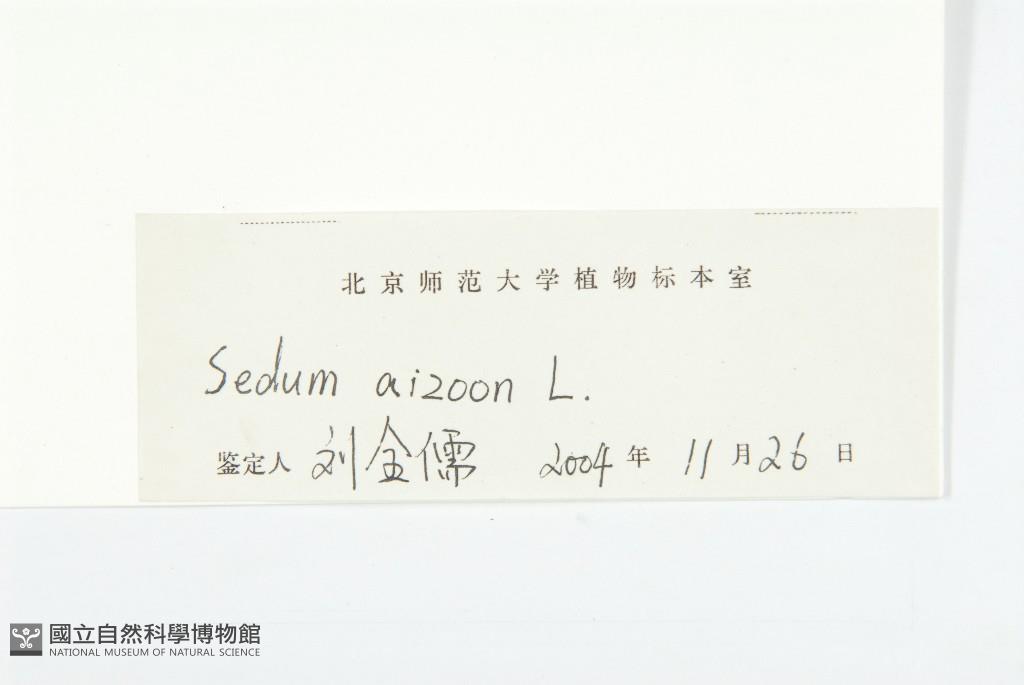 北京师范大学植物标本室
Sedum aizoon L.
鉴定人 刘全儒 2004 年 11 月 26 日
國立自然科學博物館
NATIONAL MUSEUM OF NATURAL SCIENCE